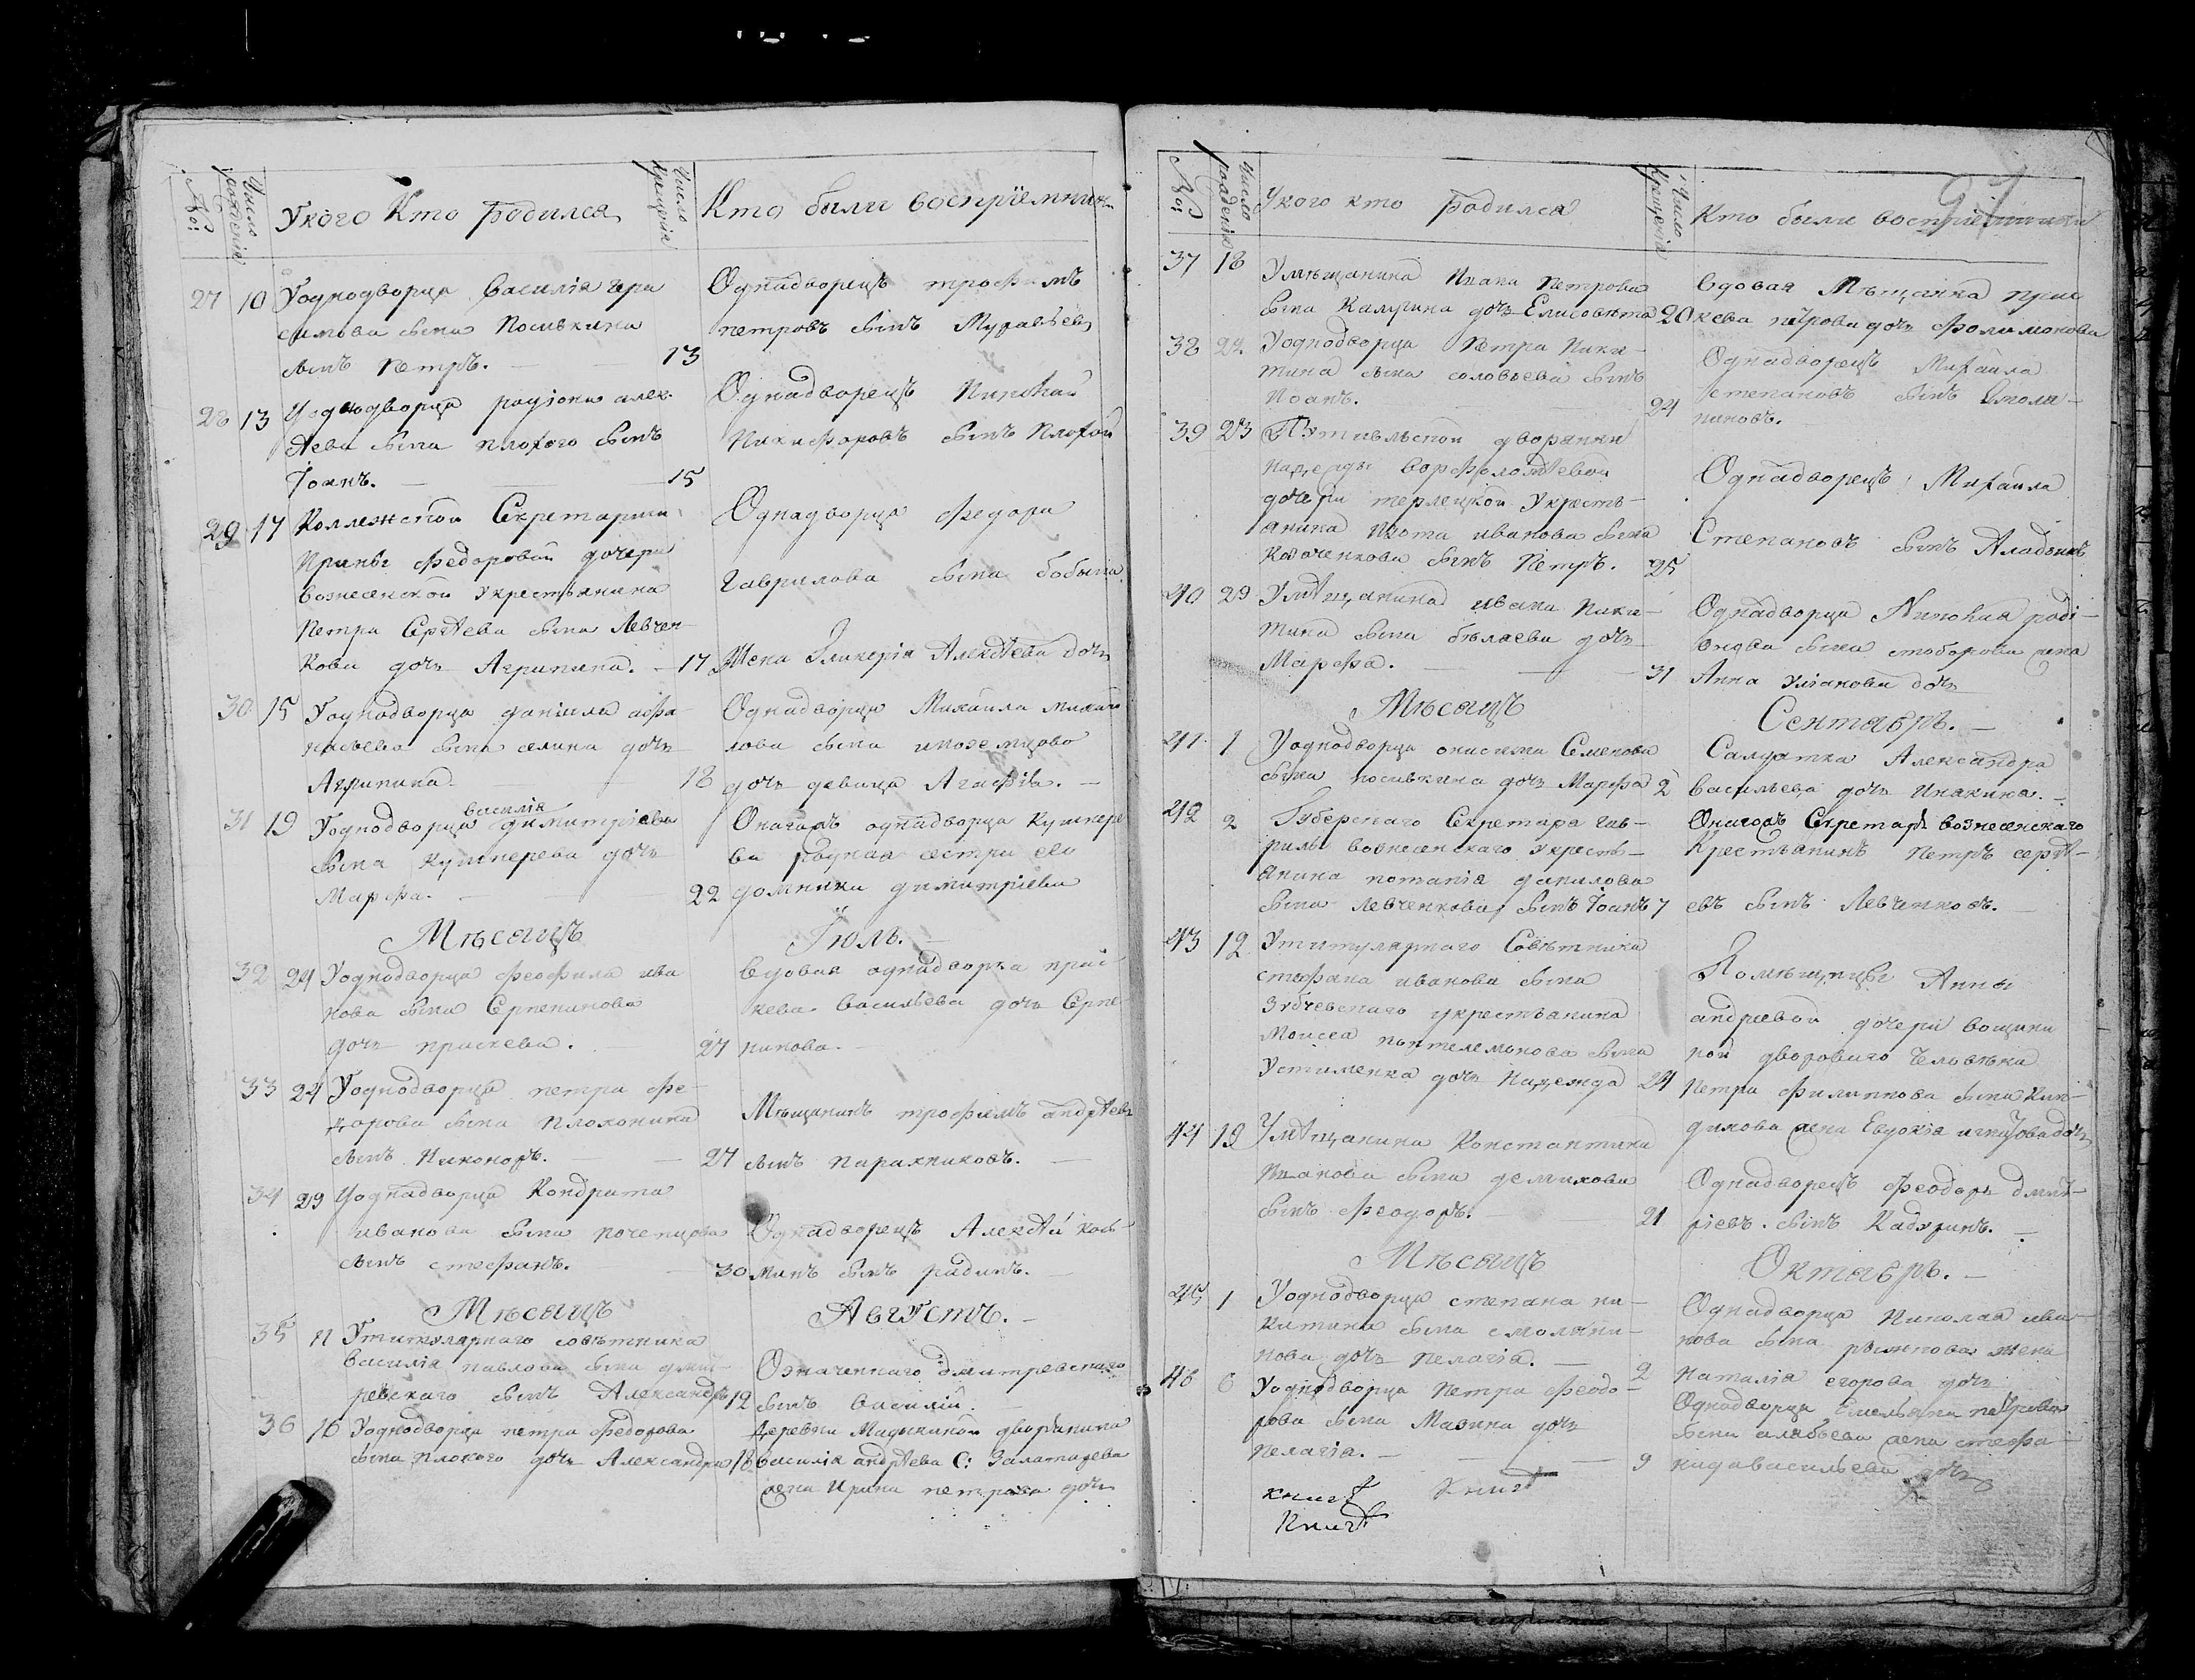 №
Число рожденія
У кого Кто родился
Число крещенія
Кто были воспріемники
27 10 У однодворца Василія Гера
симова сына Посивкина
сынъ Петръ. 13
Однадворецъ трофимъ
петровъ сынъ Муравьевъ
28 13 У однодворца родіона алек
ѣева сына плохого сынъ
Іоанъ. 15
Однадворецъ Николай
Никифоровъ сынъ Плохой
29 17 Коллежской Секретарши
Ирины федоровой дочери
вознесенской у крестьянина
Петра Сергѣева сына Левчен-
кова дочь Агрипина. 17
Однадворца федора
Гаврилова сына бобыля
Жена Гликерія Алексѣева дочь
30 15 У однодворца даніила афа-
насьева сына селина дочь
Агрипина 18
Однадворца Михаила михаи
лова сына иноземцова
дочь девица Агафія.
31 19 У однодворца василія димитріева
сына кушнерева дочь
Марфа. 22
Онагожъ однадворца кушнере
ва родная сестра его
домника димитріева
Мѣсяцъ Іюль.
32 24 У однадворца феофила ива
нова сына Серпенинова
дочь праскева. 27
вдовая однадворка прас-
кева васильева дочь Серпе
нинова.
33 24 У однодворца петра фе-
дорова сына плохонина
сынъ Никоноръ. 27
Мѣщанинъ трофимъ андрѣевъ
сынъ Парахниковъ.
34 29 У однадворца Кондрата
иванова сына почепцова
сынъ стефанъ. 30
Однадворецъ Алексѣй козь-
минъ сынъ радинъ.
Мѣсяцъ Августъ.
35 11 У титулярнаго совѣтника
василія павлова сына дмит-
ревскаго сынъ Александръ 12
Означеннаго дмитревскаго
сынъ василій.
36 16 У однодворца петра федорова
сына плохого дочь Александра 18
деревни Мадыкиной дворянина
василія андрѣева С: Залатарева
жена Ирина петрова дочь
№
Число рожденія
У кого кто родился
Число Крещенія
Кто были воспріемники
37 18 У мѣщанина Ивана Петрова
сына Калугина дочь Елисовѣта 20
вдовая Мѣщанка прас
кева петрова дочь Фолимонова
38 22 У однодворца Петра Ники-
тина сына соловьева сынъ
Иоанъ. 24
Однадворецъ Михаила
степановъ сынъ Смоля-
ниновъ.
39 23 Путивльской дворянки
надежды ворфоломѣевой
дочери терлецкой у кресть-
янина Изота иванова сына
Козоченкова сынъ Петръ. 25
Однадворецъ Михаила
Степановъ сынъ Аладьинъ
40 29 У мѣщанина ивана Ники-
тина сына бѣляева дочь
Марфа. 31
Однадворца Николая роді-
онова сына стоборова жена
Анна Уліанова дочь
Мѣсяцъ Сентябрь.
41 1 У однодворца онисима Семенова
сына посивкина дочь Марфа 2
Салдатка Александра
васильева дочь Инакина.
42 2 Губерскаго Секретаря гав-
рилы вознесенскаго у кресть-
янина потапія данилова
сына Левченкова сынъ Іоанъ 7
Онагожъ Секретаря вознесенскаго
Крестьянинъ петръ сергѣ-
евъ сынъ Левченковъ.
43 12 У титулярнаго Совѣтника
стефана иванова сына
Зубчевскаго у крестьянина
Моисея пантелемонова сына
Устименка дочь Надежда 24
Помѣщицы Анны
андрѣевой дочери вощини
ной двороваго человѣка
Петра филиппова сына Кин-
дякова жена Евдокія игнатова дочь
44 19 У мѣщанина Константина
Иванова сына демихова
сынъ феодоръ. 21
Однадворецъ феодоръ дмит-
ріевъ сынъ Кадуринъ.
Мѣсяцъ Октябрь.
45 1 У однодворца степана ни-
китина сына смоляни-
нова дочь пелагія. 2
Однадворца Николая ива-
нова сына рыжкова жена
Наталія егорова дочь
46 6 У однодворца Петра феодо-
рова сына Мазина дочь
пелагія. 9
Однадворца Емельяна петрова
сына алябьева жена стефа
нида васильева дочь
книгѣ книгѣ
Книгѣ